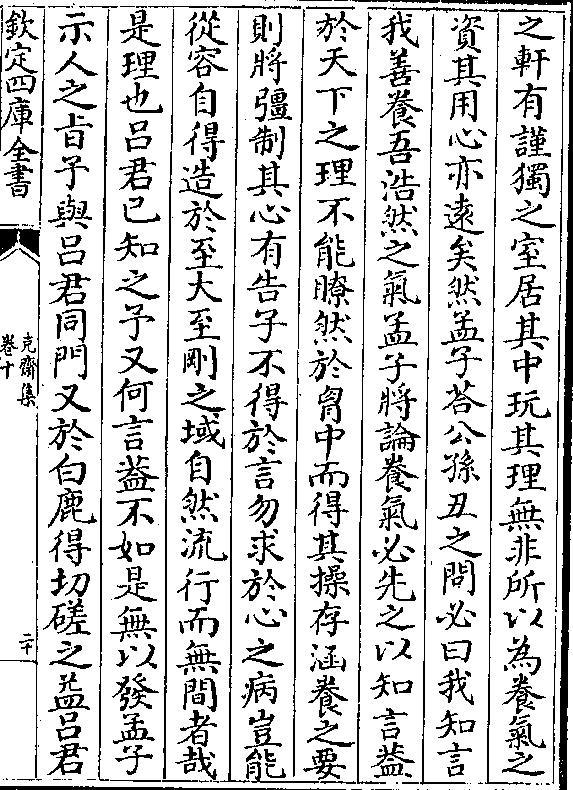 之軒有謹獨之室居其中玩其理無非所以為養氣之
資其用心亦遠矣然孟子荅公孫丑之問必曰我知言
我善養吾浩然之氣孟子將論養氣必先之以知言葢
於天下之理不能瞭然於胷中而得其操存涵養之要
則將彊制其心有告子不得於言勿求於心之病豈能
從容自得造於至大至剛之域自然流行而無間者哉
是理也吕君已知之予又何言葢不如是無以發孟子
示人之㫖予與吕君同門又於白鹿得切磋之益吕君
欽定四庫全書
克齋集
卷十
二十